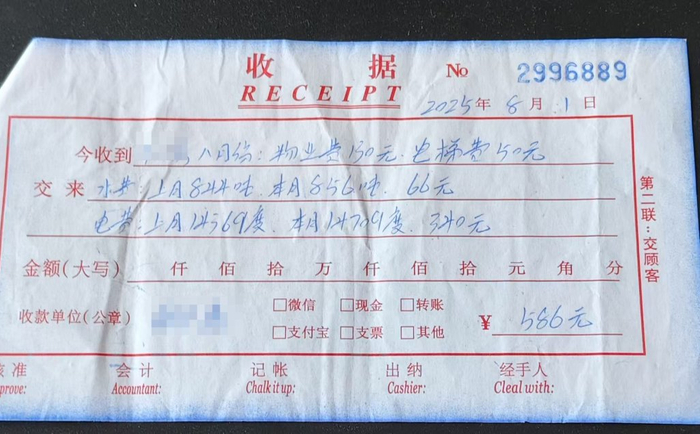 收 据 No 2996889
RECEIPT 2025年 8月 1日
今收到 八月份：物业费130元．电梯费50元
交来 水费：上月844吨．本月856吨． 66元
电费：上月14369度． 本月14709度． 340元
金额(大写) 仟 佰 拾 万 仟 佰 拾 元 角 分
收款单位(公章) □微信 □现金 □转账
□支付宝 □支票 □其他 ¥ 586元
第二联：交顾客
核准 会计 记帐 出纳 经手人
prove: Accountant: Chalk it up: Cashier: Cleal with: